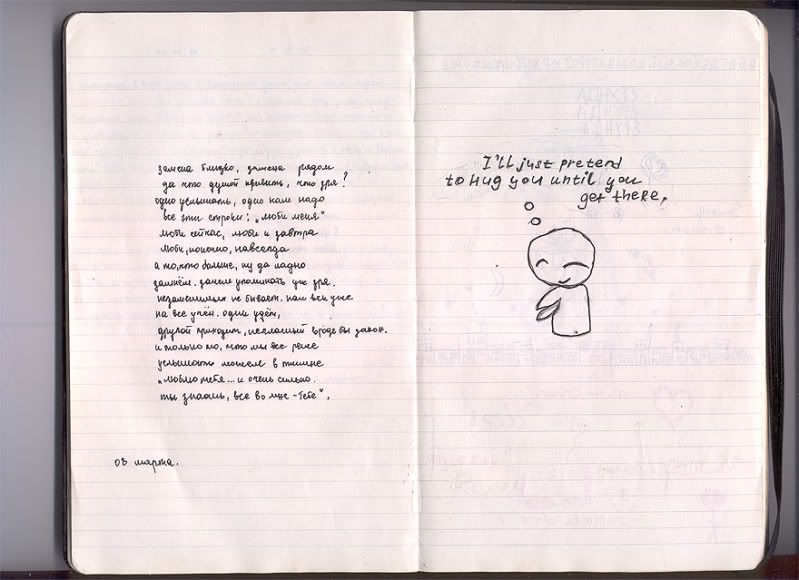 замена близко, замена рядом
да что душой кривить, что зря?
одно услышать, одно нам надо
все эти строки: „люби меня"
люби сейчас, люби и завтра
люби, конечно, навсегда
а то, что больше, ну да ладно
замнём. зачем упоминать уж зря.
незаменимых не бывает. нам век уже
на все учён. один уйдёт,
другой приходит, негласный вроде бы закон.
и только то, что мы все реже
услышать можем в тишине
„люблю тебя... и очень сильно.
ты знаешь, все во мне - тебе".
03 марта.
I'll just pretend
to hug you until you
get there.